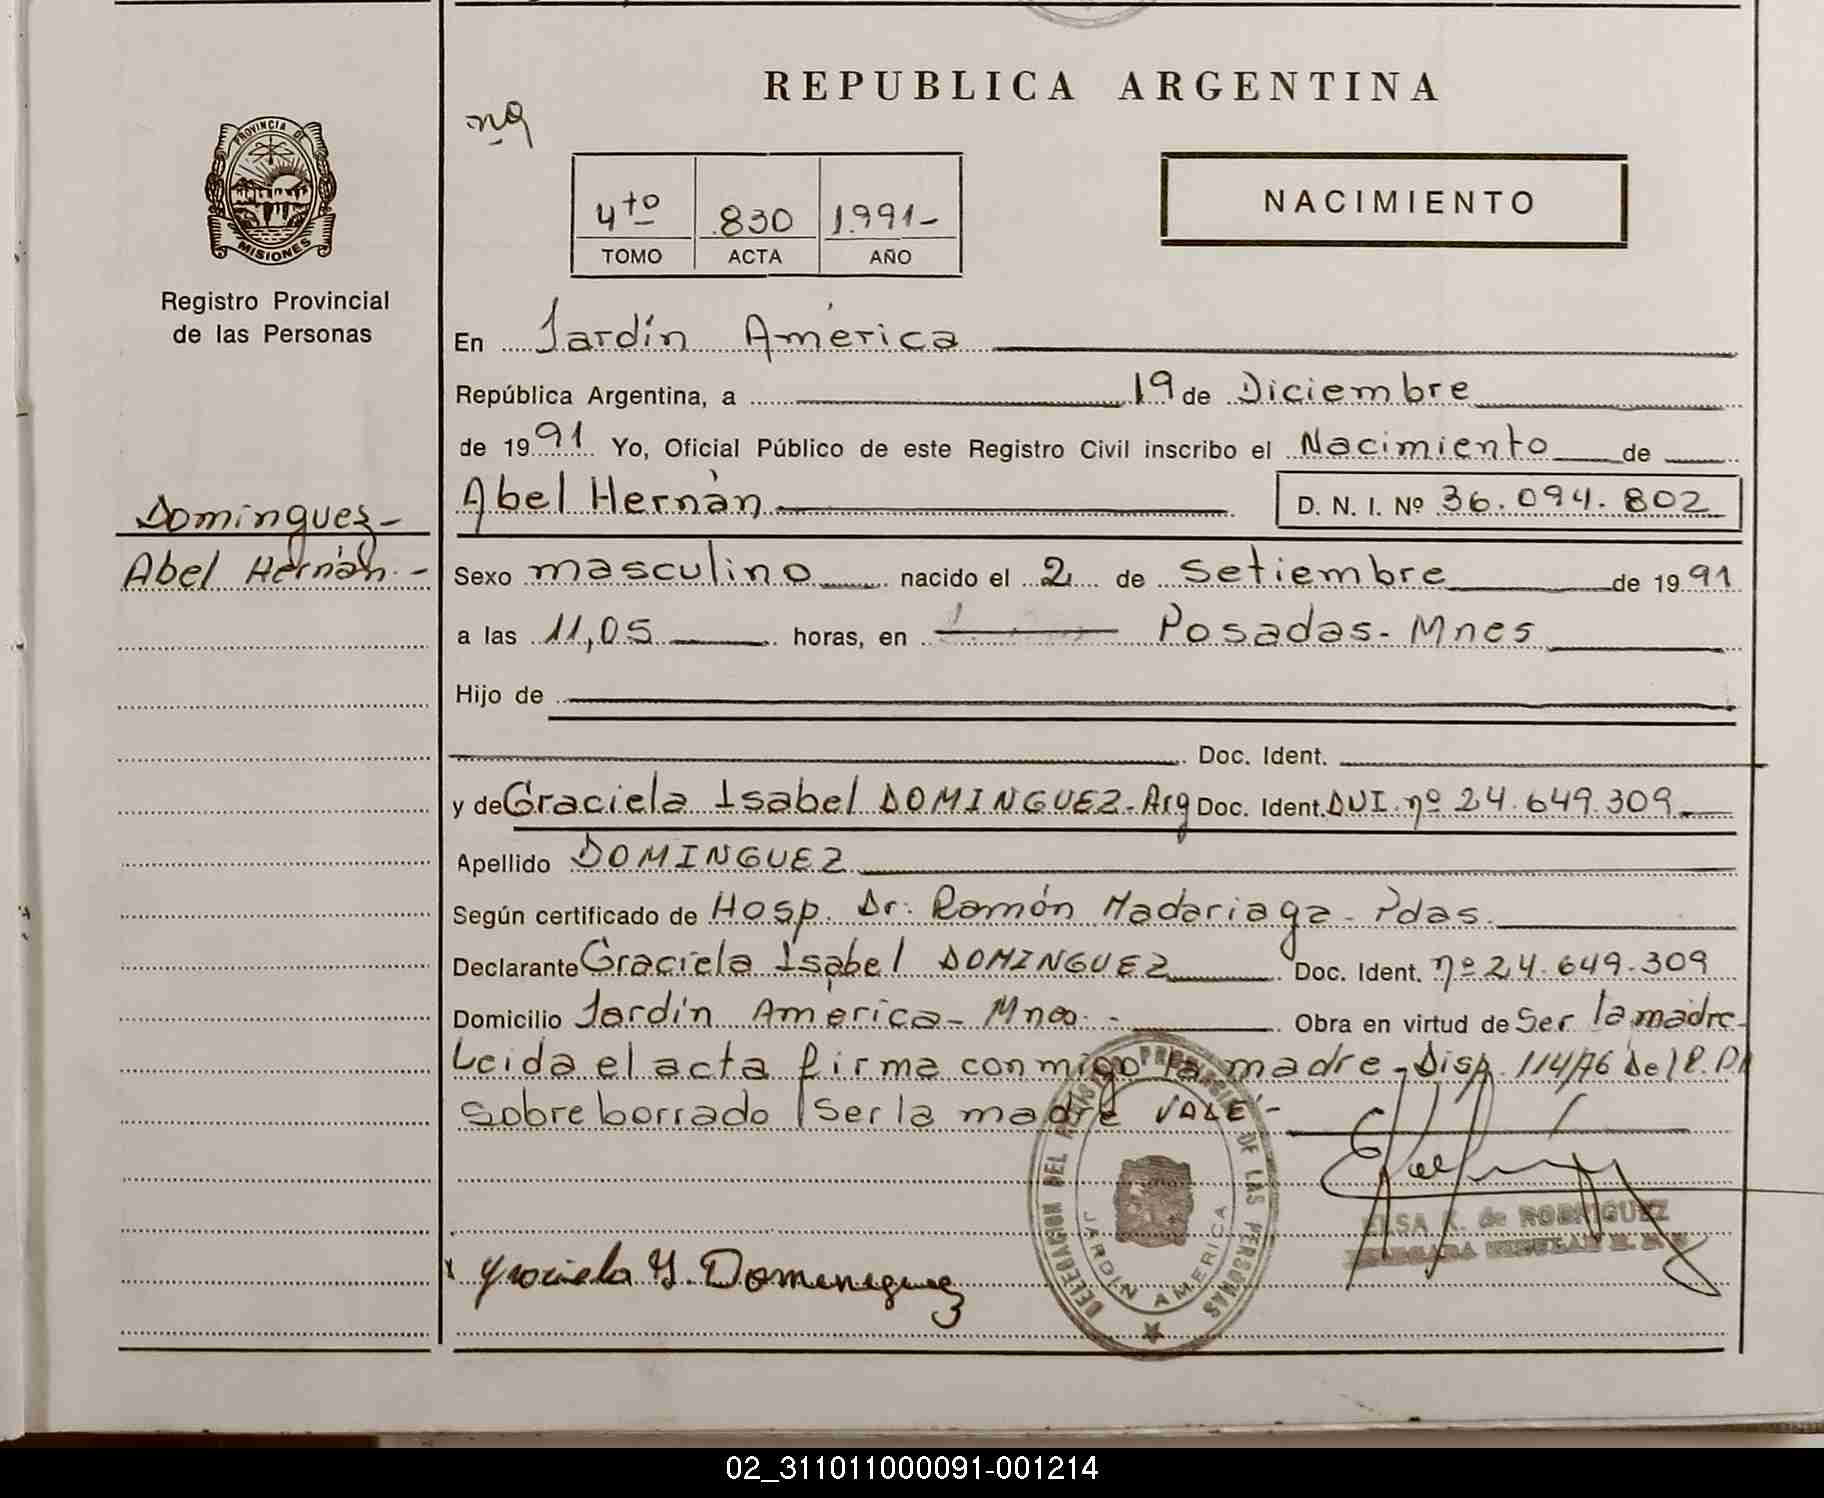 REPUBLICA ARGENTINA
nº
PROVINCIA DE
MISIONES
Registro Provincial
de las Personas
4to 830 1.991-
TOMO ACTA AÑO
NACIMIENTO
En Jardín América
República Argentina, a 19 de Diciembre
de 1991 Yo, Oficial Público de este Registro Civil inscribo el Nacimiento de
Abel Hernán D. N. I. Nº 36.094.802
Dominguez-
Abel Hernán.-
Sexo masculino nacido el 2 de Setiembre de 1991
a las 11,05 horas, en Posadas- Mnes
Hijo de
Doc. Ident.
y de Graciela Isabel DOMINGUEZ-Arg Doc. Ident. DUI. nº 24.649.309
Apellido DOMINGUEZ
Según certificado de Hosp. Dr. Ramón Madariaga- Pdas.
Declarante Graciela Isabel DOMINGUEZ Doc. Ident. nº 24.649.309
Domicilio Jardín América- Mnes.- Obra en virtud de Ser la madre-
Leida el acta firma conmigo la madre-Disp. 114/76 del R.P.
Sobre borrado Ser la madre VALE-
DELEGACION DEL REGISTRO PROVINCIAL DE LAS PERSONAS
JARDIN AMERICA
ELSA K. de RODRIGUEZ
Graciela Y. Domeneguez
02_311011000091-001214